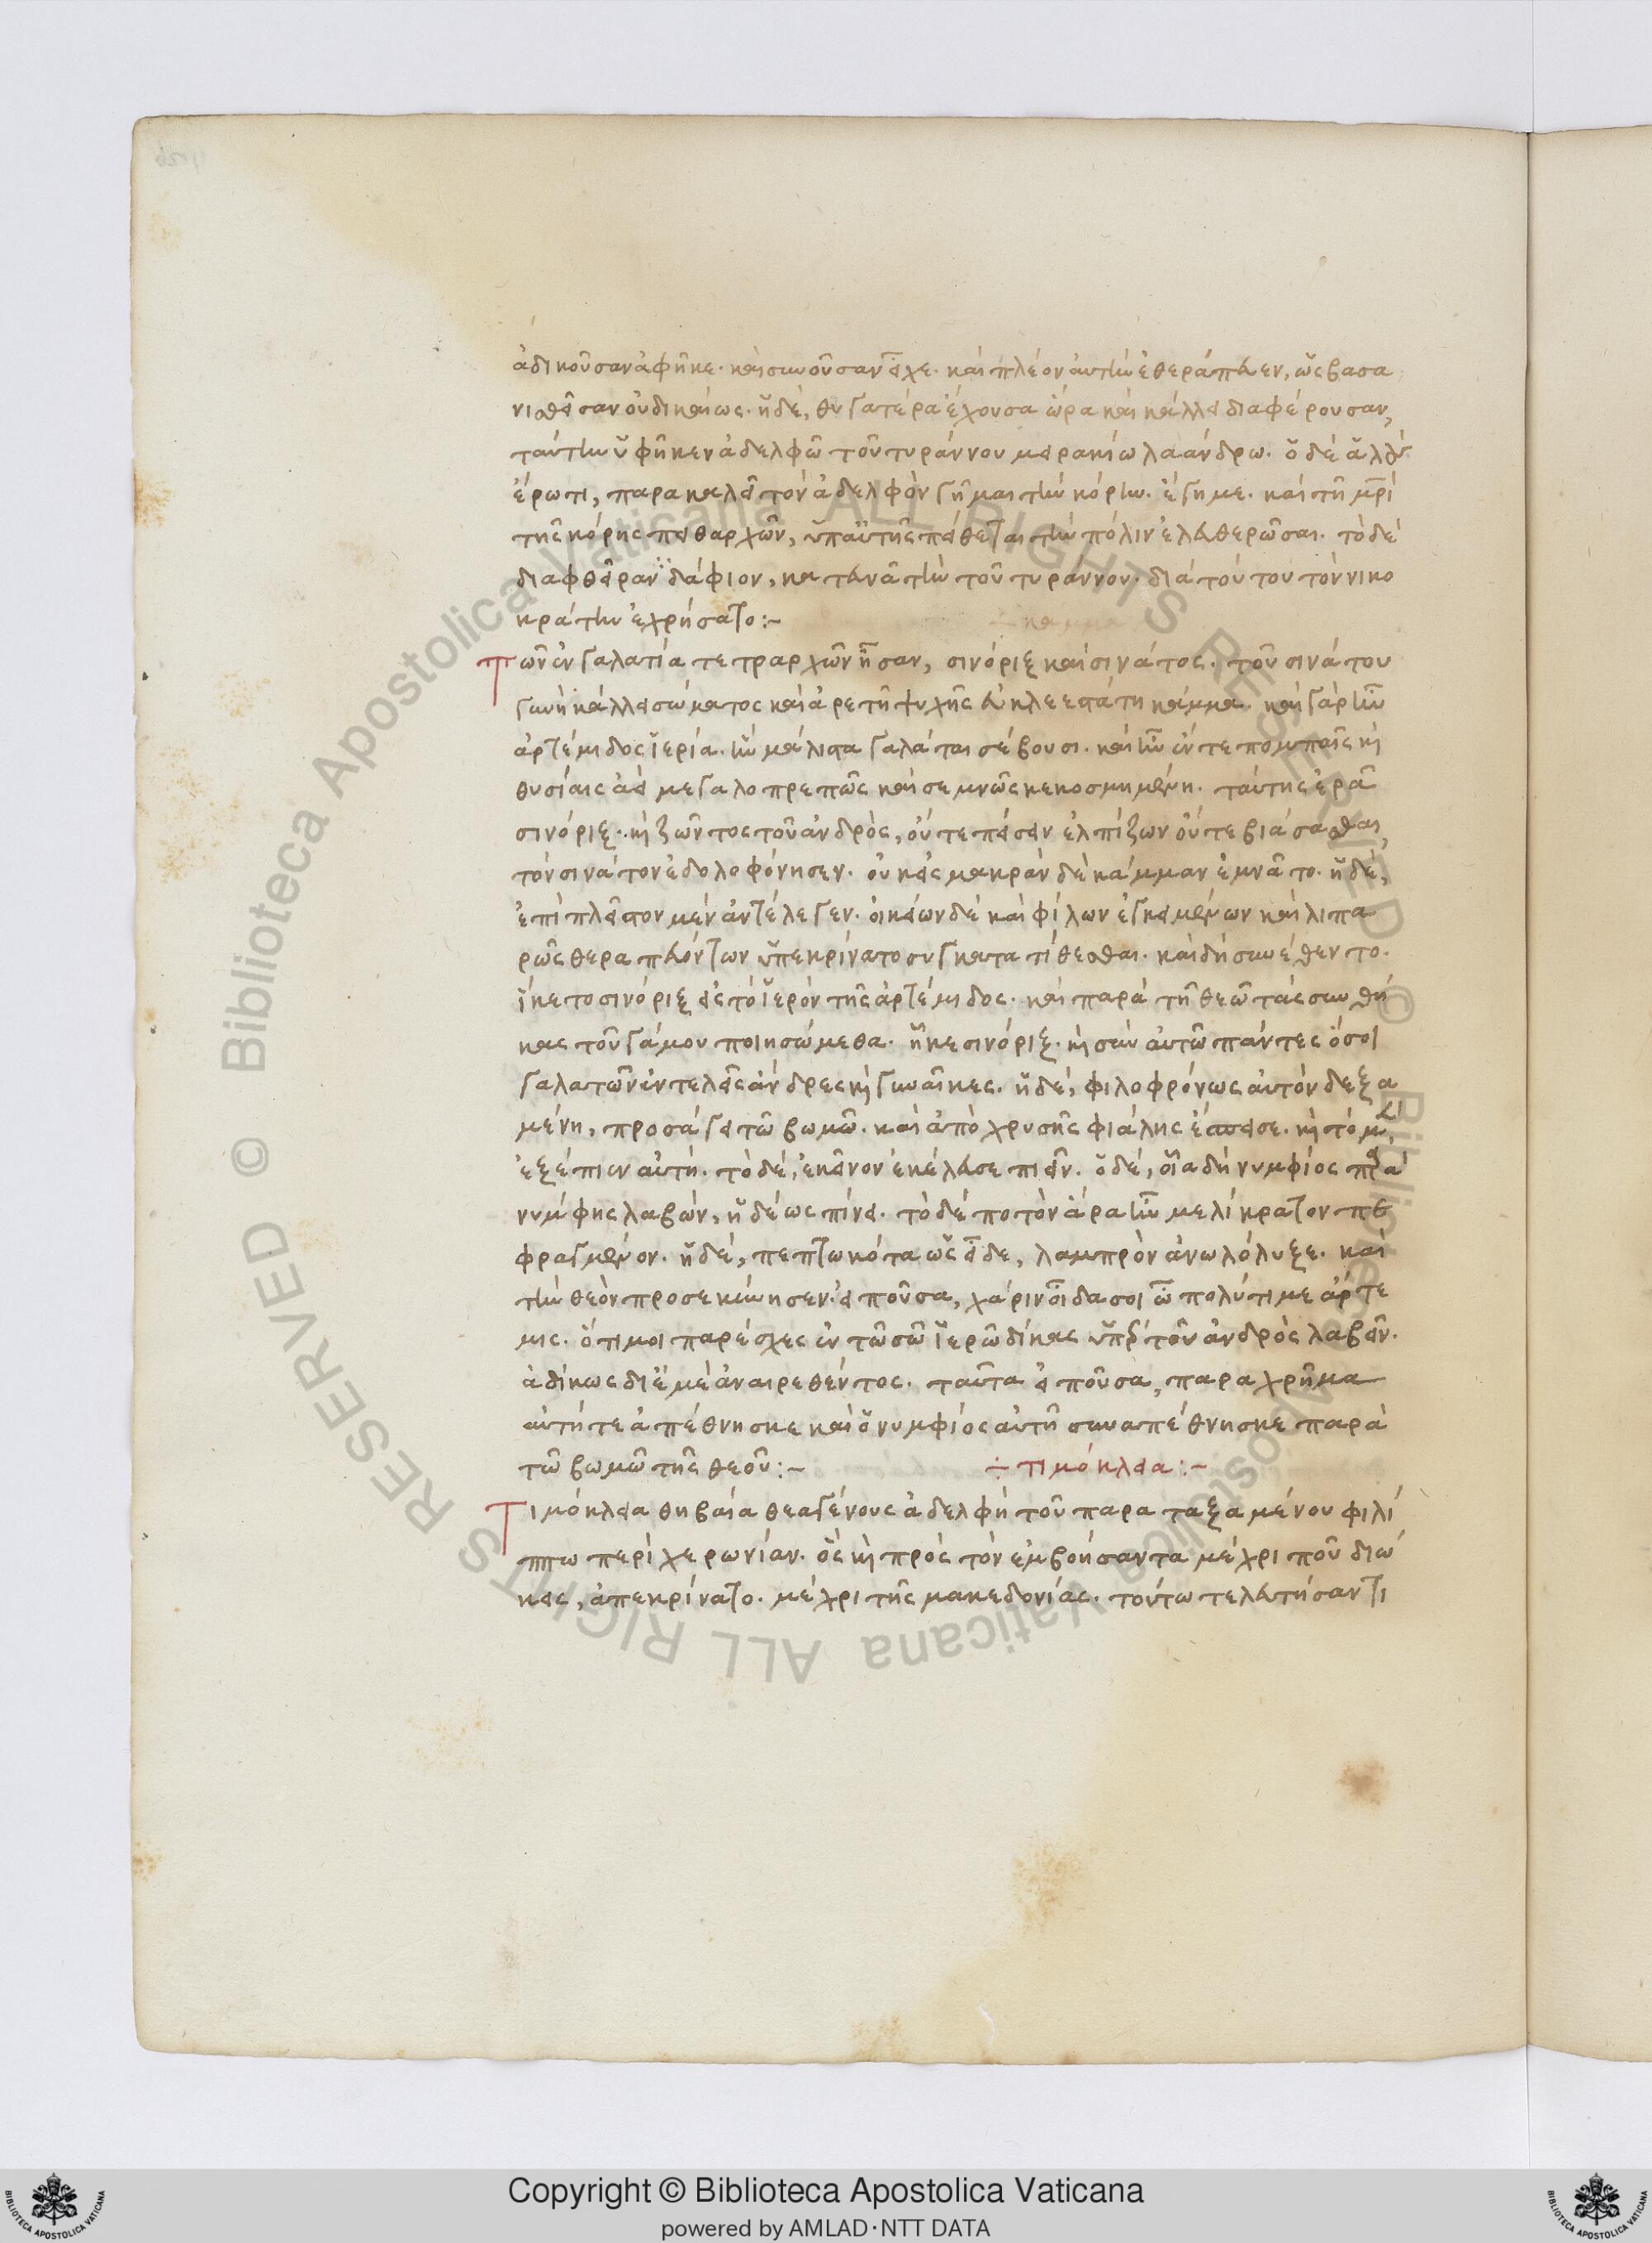 ἀδικοῦσαν ἀφῆκε. καὶ συνοῦσαν εἶχε. καὶ πλέον αὐτὴν ἐθεράπευεν, ὡς βασα
νισθεῖσαν οὐ δικαίως. ἡ δὲ, θυγατέρα ἔχουσα ὥρα καὶ κάλλει διαφέρουσαν,
ταύτην ὑφῆκεν ἀδελφῶ τοῦ τυράννου μειρακίω λαάνδρω. ὁ δὲ ἁλοὺς
ἔρωτι, παρακαλεῖ τὸν ἀδελφὸν γῆμαι τὴν κόρην. ἔγημε. καὶ τῆ μρὶ
τῆς κόρης πειθαρχῶν, ὑπ' αὐτῆς πείθεται τὴν πόλιν ἐλευθερῶσαι. τὸ δὲ
διαφθεῖραν δάφιον, κατευνᾶτὴν τοῦ τυράννου. διὰ τούτου τὸν νικο
κράτην ἐχρήσατο :-
÷ καμμα
Τῶν ἐν γαλατία τετραρχῶν ἦσαν, σινόριξ καὶ σινάτος. τοῦ σινάτου
γυνὴ κάλλει σώματος καὶ ἀρετῆ ψυχῆς εὐκλεεστάτη κάμμα. καὶ γὰρ ἦν
ἀρτέμιδος ἱερία. ἣν μάλιστα γαλάται σέβουσι. καὶ ἦν ἔν τε πομπαῖς κὶ
θυσίαις ἀεὶ μεγαλοπρεπῶς καὶ σεμνῶς κεκοσμημένη. ταύτης ἐρᾶ
σινόριξ. κὶ ζῶντος τοῦ ἀνδρὸς, οὔτε πείσειν ἐλπίζων οὔτε βιάσασθαι,
τὸν σινάτον ἐδολοφόνησεν. οὐκ εἰς μακρὰν δὲ κάμμαν ἐμνᾶτο. ἡ δὲ,
ἐπὶ πλεῖστον μὲν ἀντέλεγεν. οἰκείων δὲ καὶ φίλων ἐγκειμένων καὶ λιπα
ρῶς θεραπευόντων ὑπεκρίνατο συγκατατίθεσθαι. καὶ δὴ συνέθεντο.
ἵκετο σινόριξ εἰς τὸ ἱερὸν τῆς ἀρτέμιδος. καὶ παρὰ τῆ θεῶ τὰς συνθή
κας τοῦ γάμου ποιησώμεθα. ἧκε σινόριξ. κὶ σὺν αὐτῶ πάντες ὅσοι
γαλατῶν ἐν τελεῖς ἄνδρες κὶ γυναῖκες. ἡ δὲ, φιλοφρόνως αὐτὸν δεξα
μένη, προσάγει τῶ βωμῶ. καὶ ἀπὸ χρυσῆς φιάλης ἔσπεισε. κὶ τὸ μὲν
ἐξέπιεν αὐτή. τὸ δὲ, ἐκεῖνον ἐκέλευσε πιεῖν. ὁ δὲ, οἷα δὴ νυμφίος παρὰ
νύμφης λαβὼν, ἡδέως πίνει. τὸ δὲ ποτὸν ἄρα ἦν μελίκρατον πε
φραγμένον. ἡ δὲ, πεπτωκότα ὡς εἶδε, λαμπρὸν ἀνωλόλυξε. καὶ
τὴν θεὸν προσεκύνησεν. εἰποῦσα, χάριν οἶδα σοι ὦ πολύτιμε ἄρτε
μις. ὅτι μοι παρέσχες ἐν τῶ σῶ ἱερῶ δίκας ὑπὲρ τοῦ ἀνδρὸς λαβεῖν.
ἀδίκως δι' ἐμὲ ἀναιρεθέντος. ταῦτα εἰποῦσα, παραχρῆμα
αὐτή τε ἀπέθνησκε καὶ ὁ νυμφίος αὐτῆ συναπέθνησκε παρὰ
τῶ βωμῶ τῆς θεοῦ :-
÷ τιμόκλεια :-
Τιμόκλεια θηβαία θεαγένους ἀδελφὴ τοῦ παραταξαμένου φιλί
ππω περὶ χερωνίαν. ὃς κὶ πρὸς τὸν ἐμβοήσαντα μέχρι ποῦ διώ
κεις, ἀπεκρίνατο. μέχρι τῆς μακεδονίας. τούτω τελευτήσαντι
Copyright © Biblioteca Apostolica Vaticana
powered by AMLAD·NTT DATA